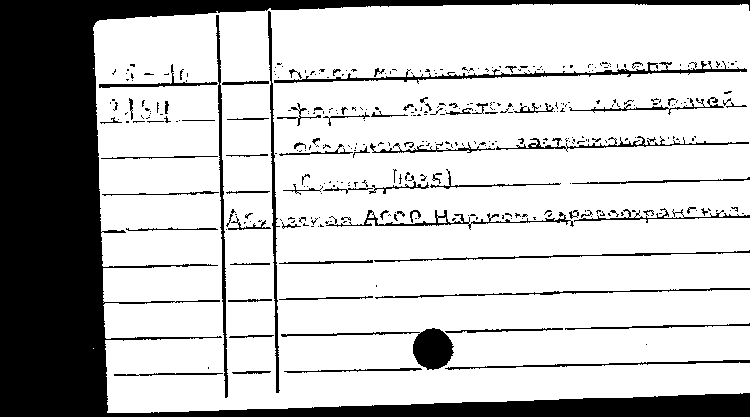 Список медикаментов и рецептурных
2164 формул обязательных для врачей
обслуживающих застрахованных.
(Сухум, [1935]
Абхазская АССР. Нар. ком. здравоохранения.